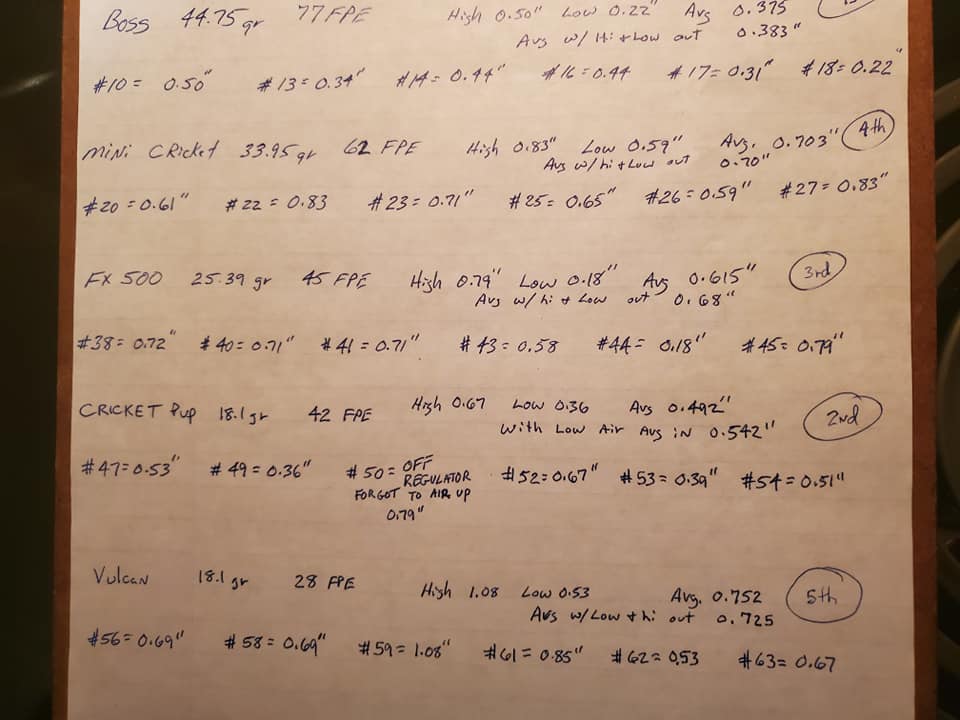 Boss 44.75 gr 77 FPE High 0.50" Low 0.22" Avg 0.375
Avg w/ Hi + Low out 0.383"
#10 = 0.50" #13 = 0.34" #14 = 0.44" #16 = 0.44 #17 = 0.31" #18 = 0.22"
MiNi CRicket 33.95 gr 62 FPE High 0.83" Low 0.59" Avg. 0.703" 4th
Avg w/ hi + Low out 0.70"
#20 = 0.61" #22 = 0.83 #23 = 0.71" #25 = 0.65" #26 = 0.59" #27 = 0.83"
FX 500 25.39 gr 45 FPE High 0.79" Low 0.18" Avg 0.615" 3rd
Avg w/ hi + Low out 0.68"
#38 = 0.72" #40 = 0.71" #41 = 0.71" #43 = 0.58 #44 = 0.18" #45 = 0.79"
CRICKET Pup 18.1 gr 42 FPE High 0.67 Low 0.36 Avg 0.492" 2nd
With Low Air Avg iN 0.542"
#47 = 0.53" #49 = 0.36" #50 = OFF REGULATOR #52 = 0.67" #53 = 0.39" #54 = 0.51"
FORGOT TO AIR UP
0.79"
Vulcan 18.1 gr 28 FPE High 1.08 Low 0.53 Avg. 0.752 5th
Avg w/ Low + hi out 0.725
#56 = 0.69" #58 = 0.69" #59 = 1.08" #61 = 0.85" #62 = 0.53 #63 = 0.67